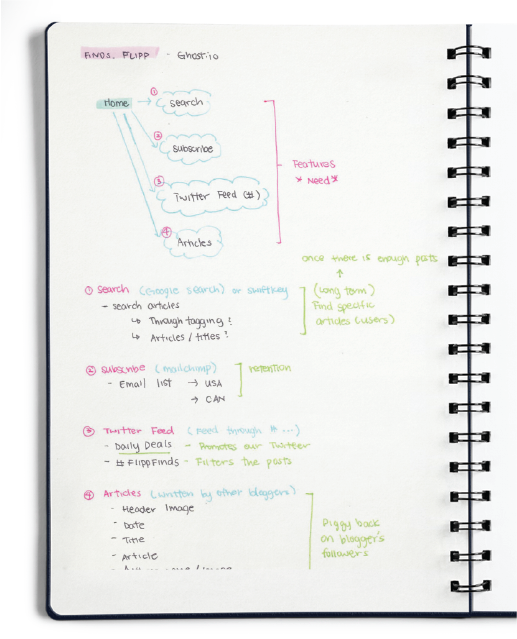 FINDS. FLIPP - Ghost.io
Home → ① Search
② Subscribe
③ Twitter Feed (#)
④ Articles
Features
* Need *
once there is enough posts
↑
① Search (Google search) or swiftkey
(Long term)
Find specific
articles (users)
- search articles
↳ Through tagging?
↳ Articles / titles?
② Subscribe (mailchimp)
retention
- Email list → USA
→ CAN
③ Twitter Feed (Feed through # ...)
- Daily Deals - Promotes our Twitter
- # FlippFinds - Filters the posts
④ Articles (written by other bloggers)
- Header Image
- Date
- Title
- Article
Piggy back
on blogger's
followers